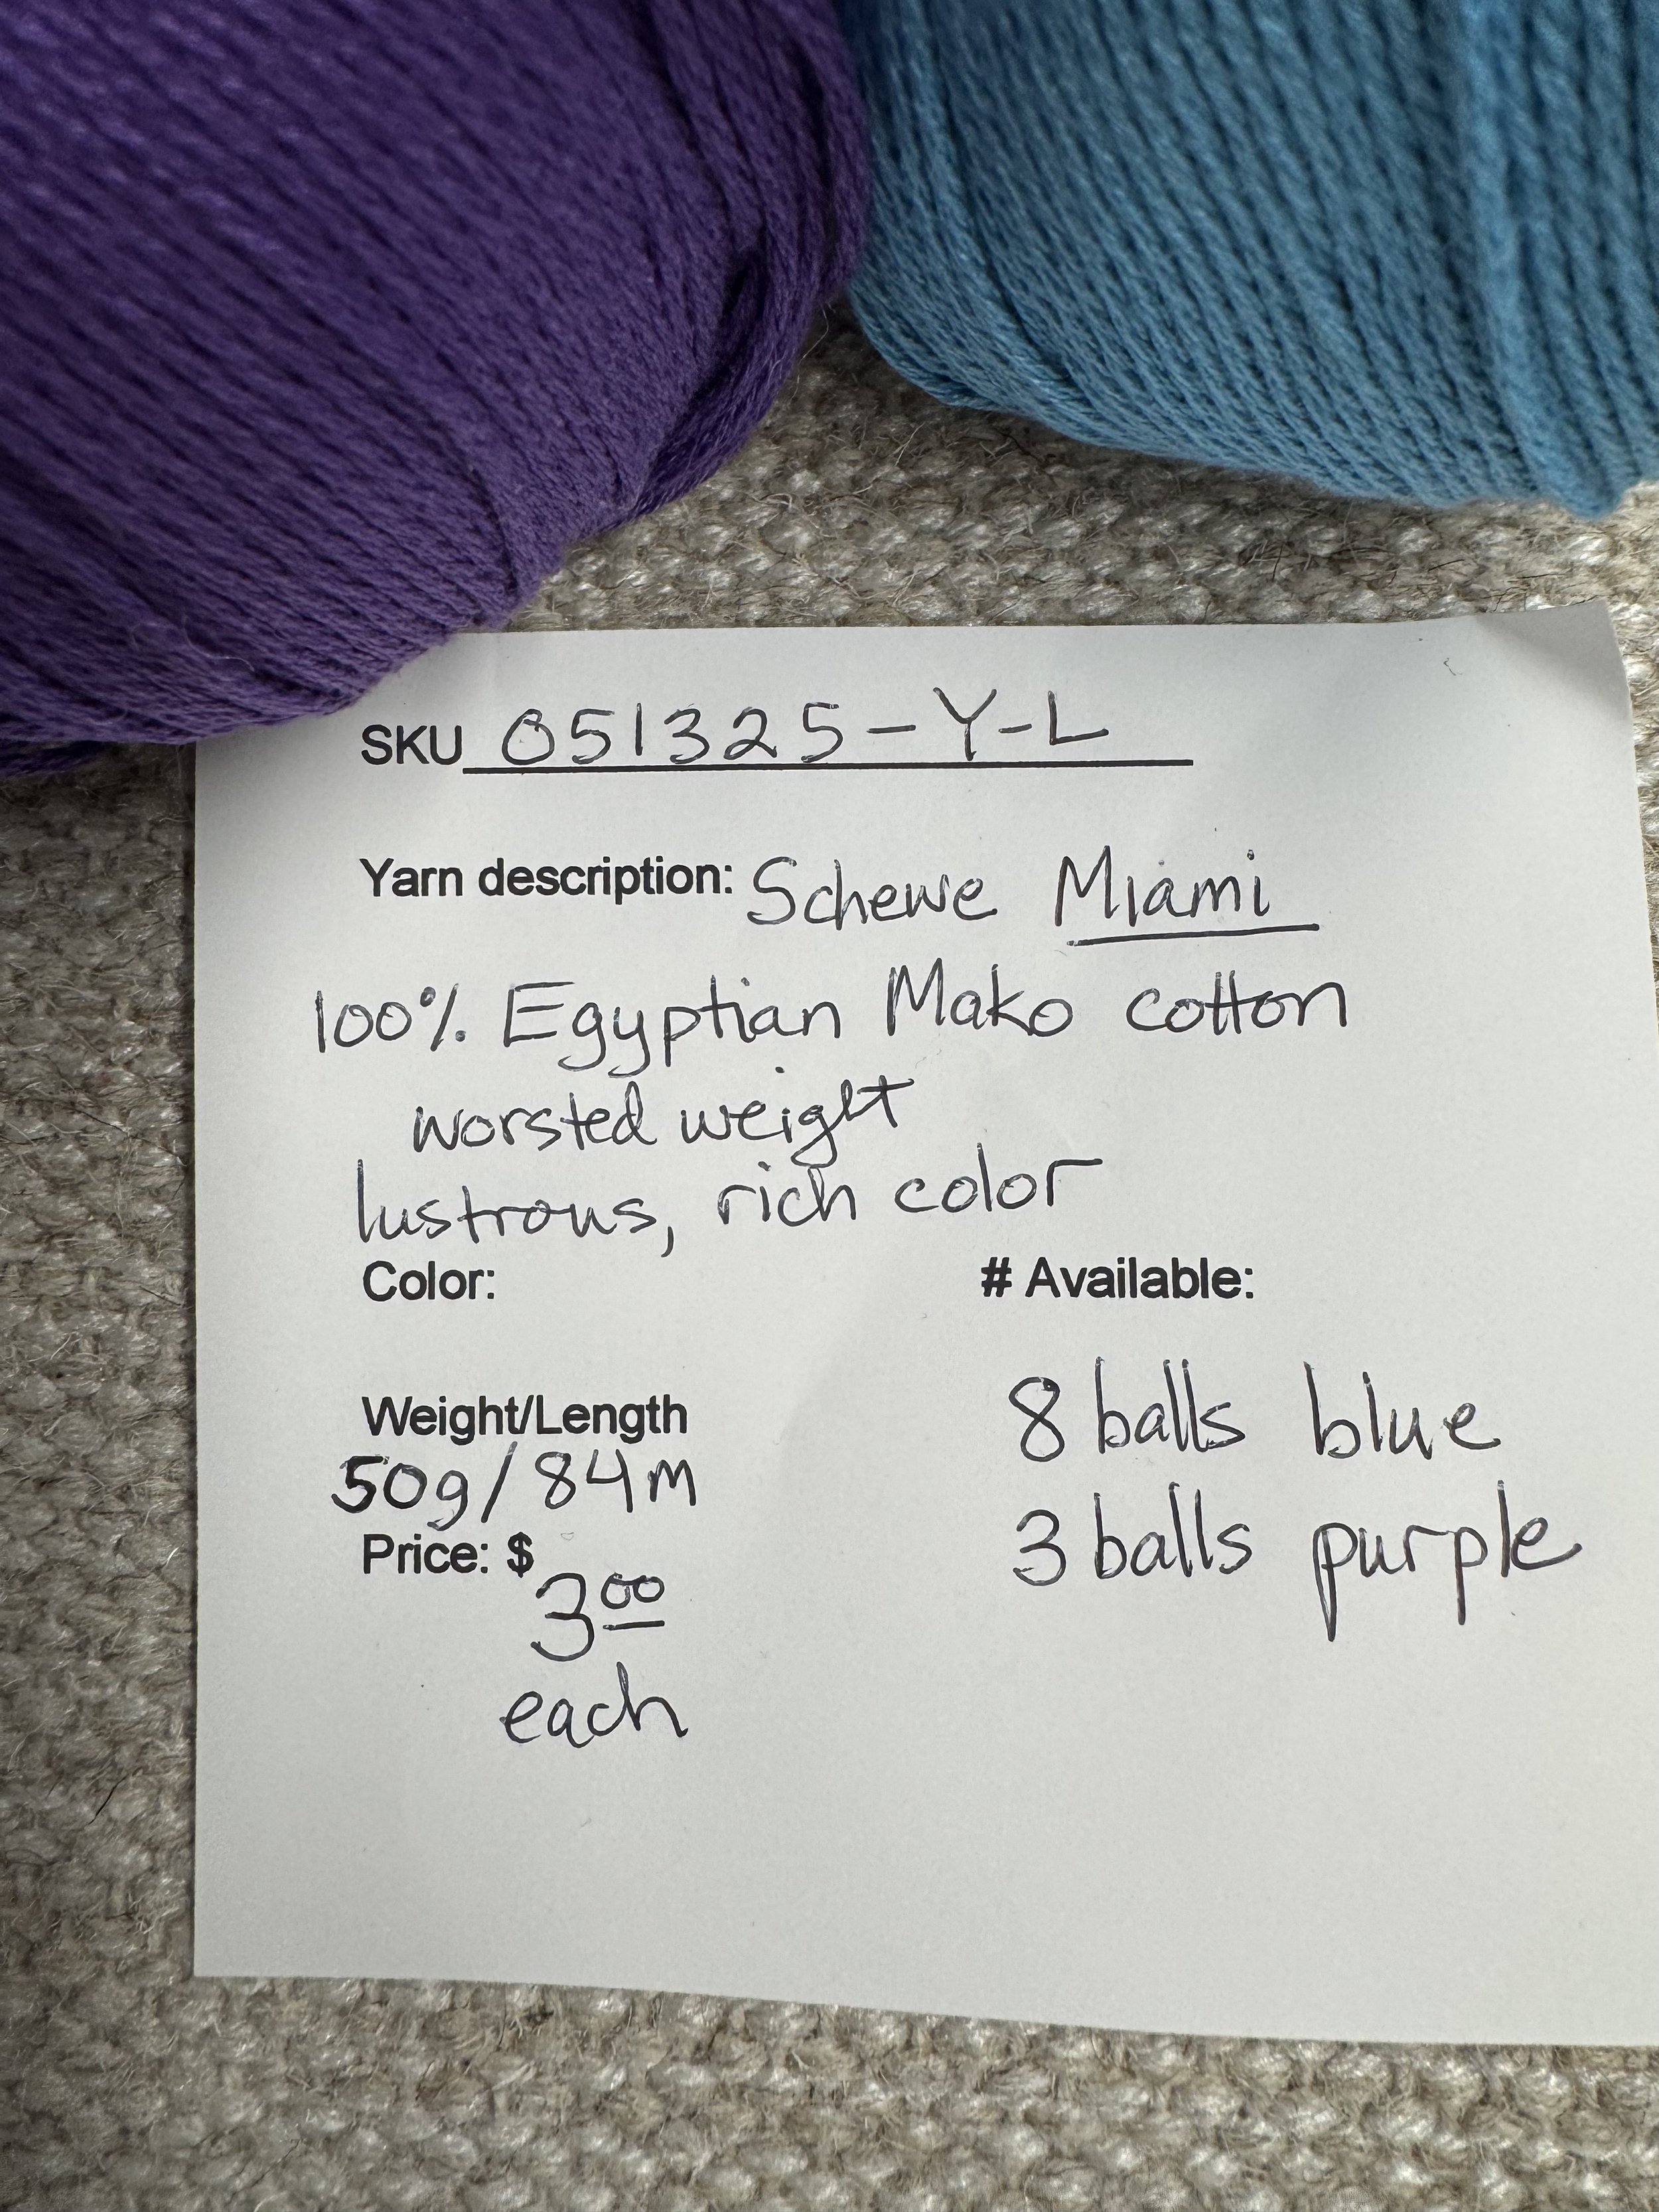 SKU 051325-Y-L
Yarn description: Schewe Miami
100% Egyptian Mako cotton
worsted weight
lustrous, rich color
Color:
# Available:
8 balls blue
3 balls purple
Weight/Length
50g/84m
Price: $
3.00
each